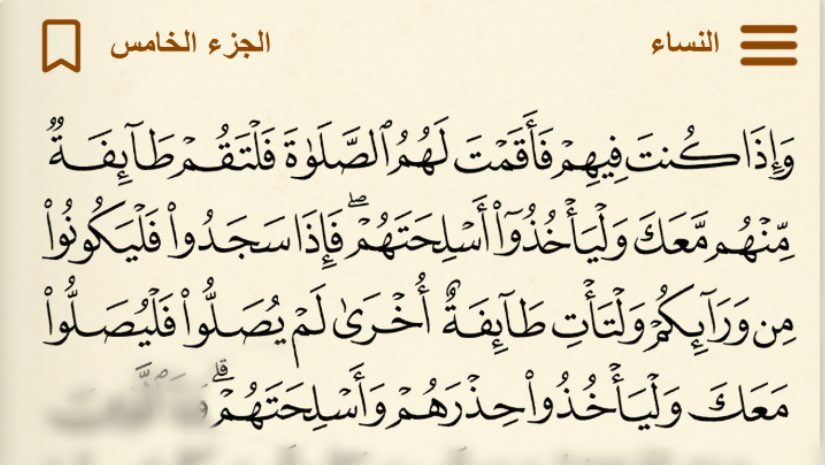 النساء الجزء الخامس
وَإِذَا كُنتَ فِيهِمۡ فَأَقَمۡتَ لَهُمُ ٱلصَّلَوٰةَ فَلۡتَقُمۡ طَآئِفَةٌ
مِّنۡهُم مَّعَكَ وَلۡيَأۡخُذُوٓاْ أَسۡلِحَتَهُمۡۖ فَإِذَا سَجَدُواْ فَلۡيَكُونُواْ
مِن وَرَآئِكُمۡ وَلۡتَأۡتِ طَآئِفَةٌ أُخۡرَىٰ لَمۡ يُصَلُّواْ فَلۡيُصَلُّواْ
مَعَكَ وَلۡيَأۡخُذُواْ حِذۡرَهُمۡ وَأَسۡلِحَتَهُمۡۗ